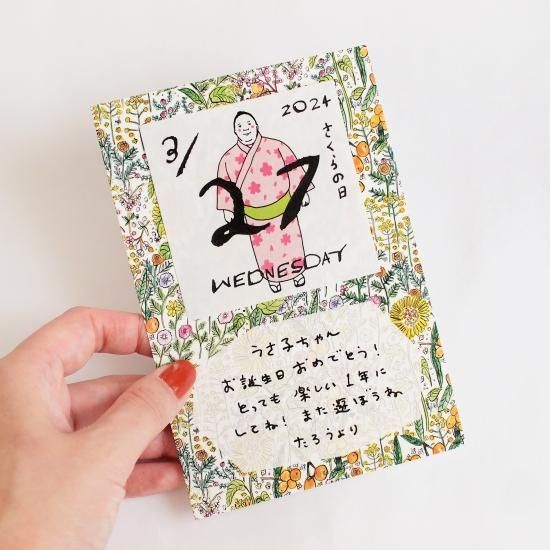 3/27
2024
さくらの日
WEDNESDAY
うさ子ちゃん
お誕生日おめでとう!
とっても楽しい1年に
してね!また遊ぼうね
たろうより